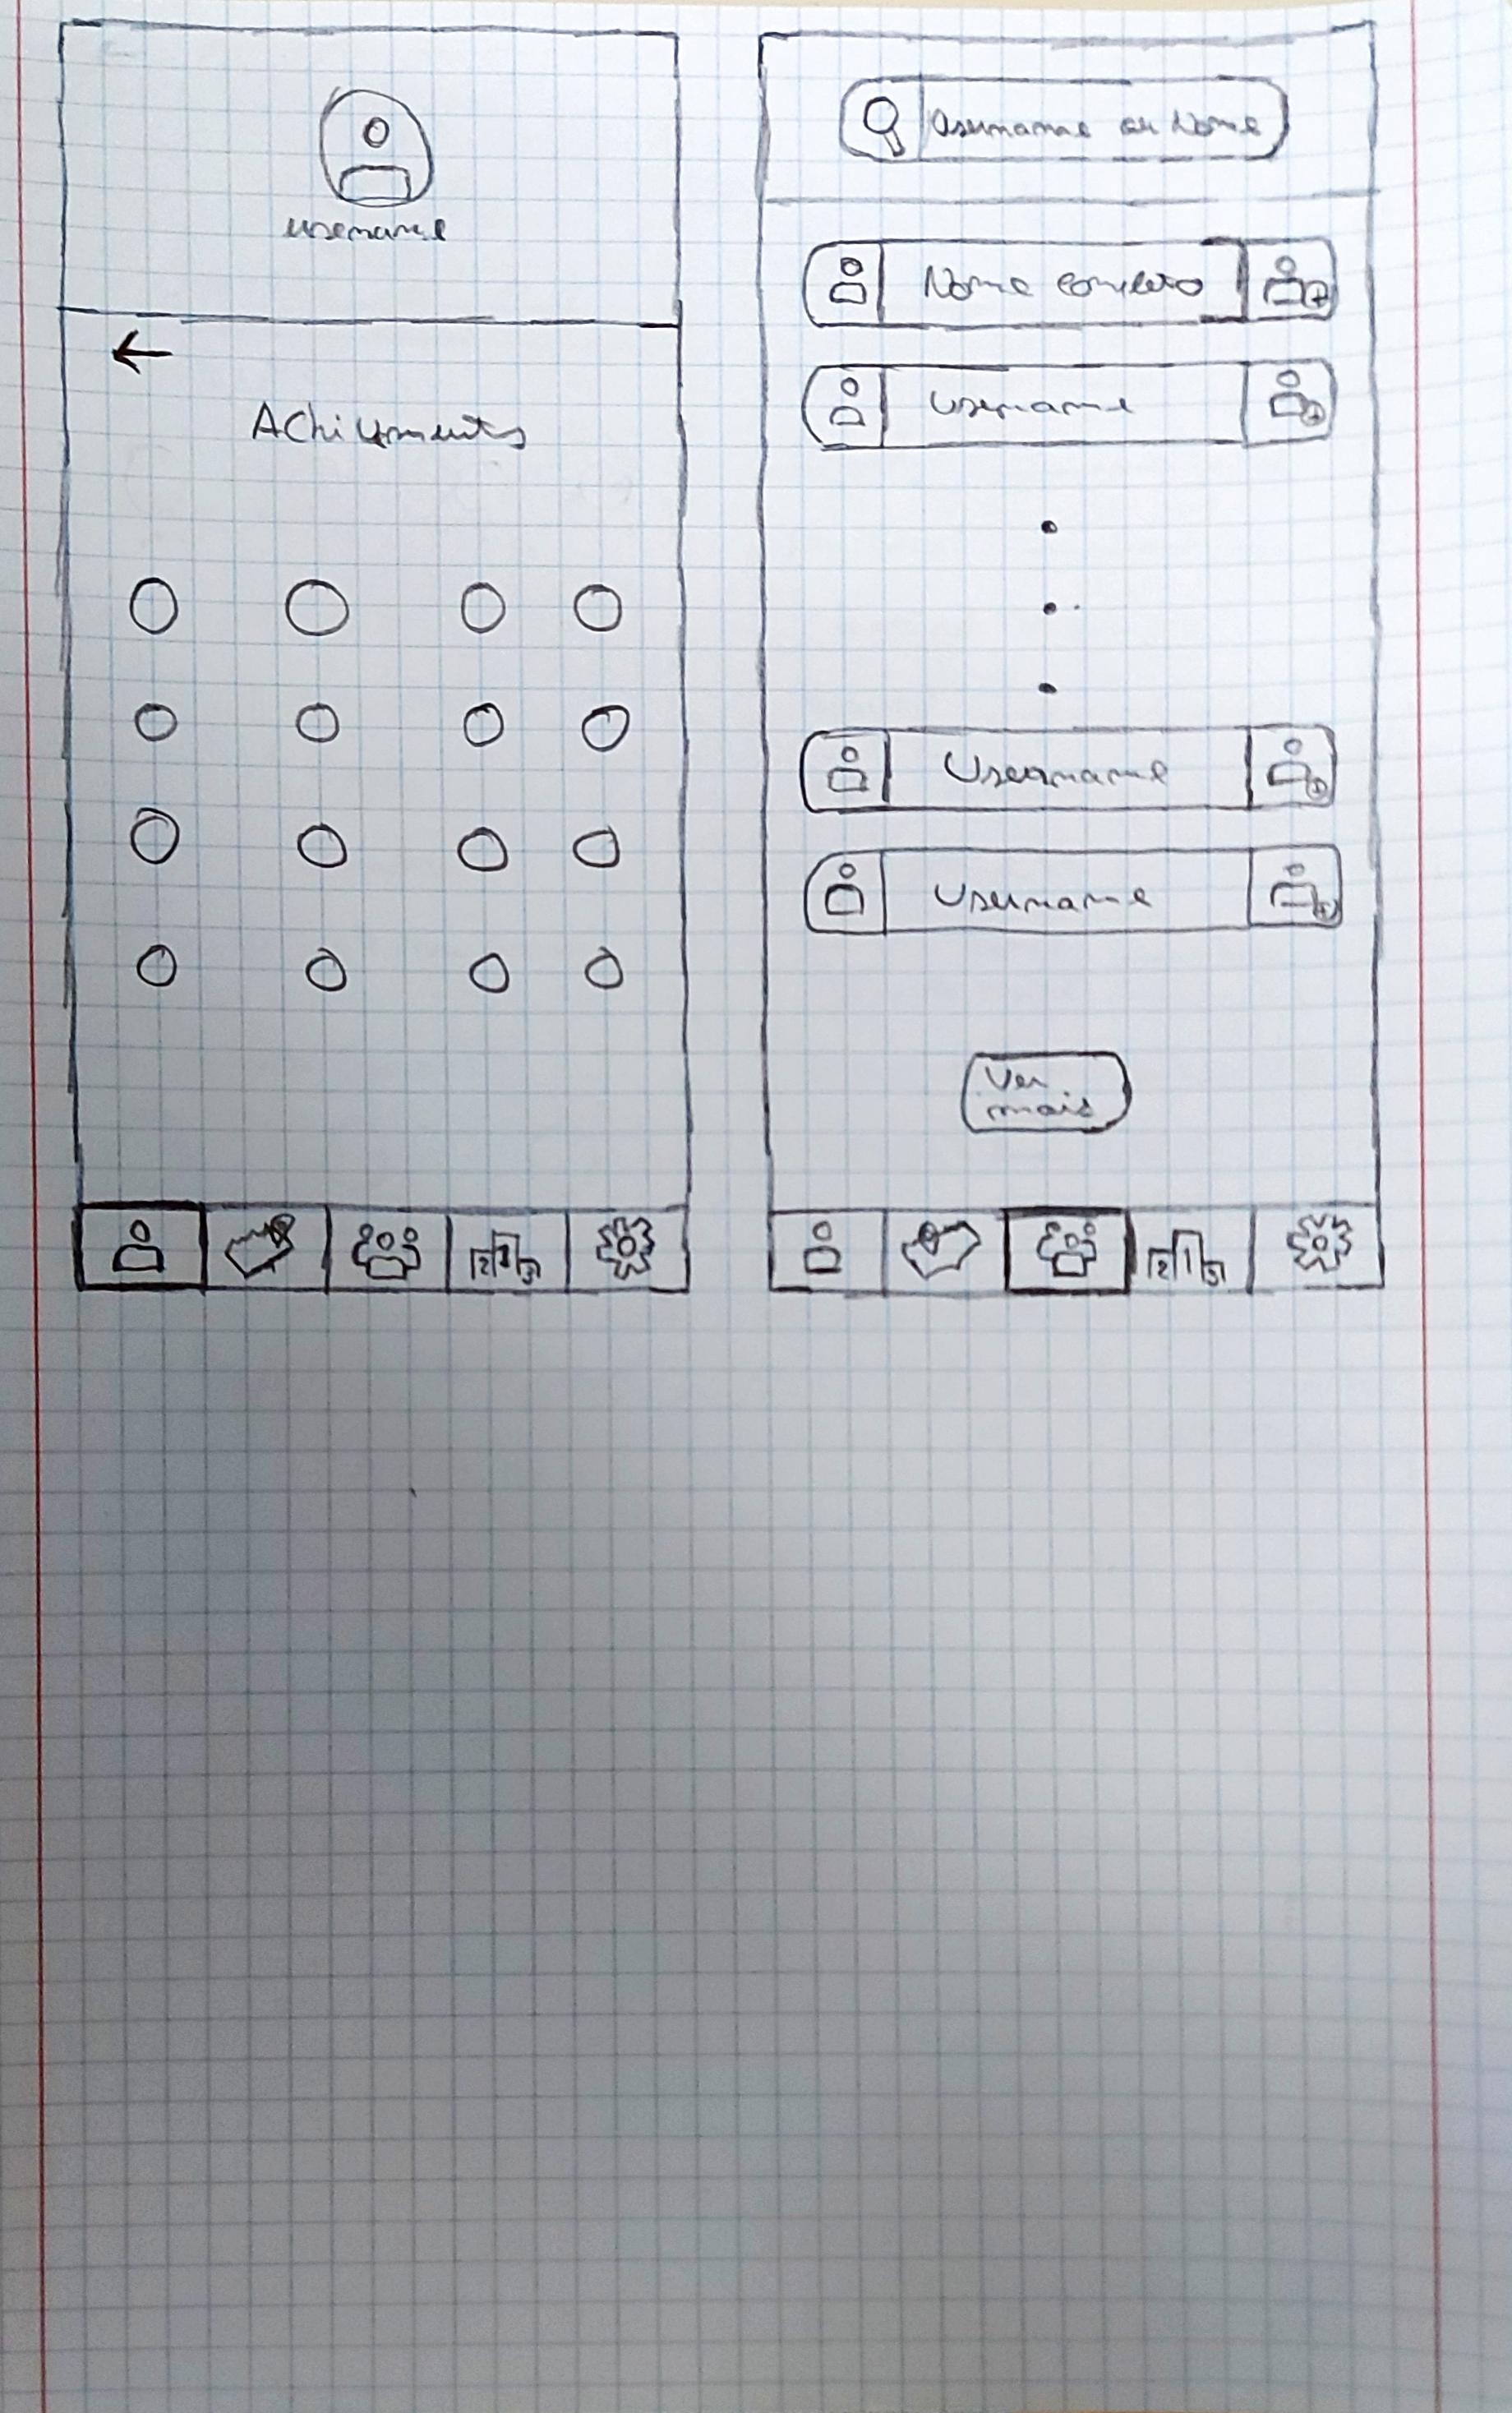 username
Achivments
Username ou Nome
Nome completo
Username
Username
Username
Ver
mais
2 1 3
2 1 3